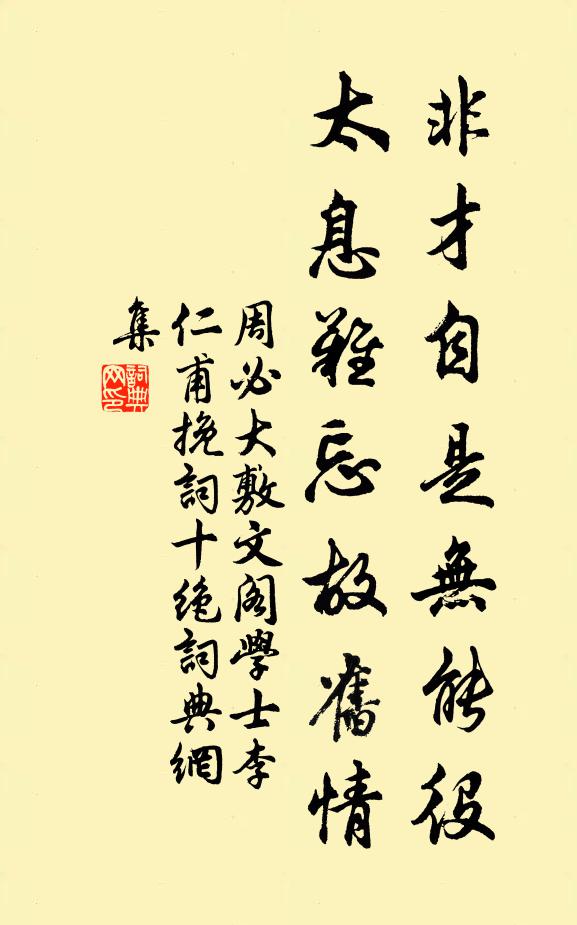 非才自是無能役
太息難忘故舊情
周必大敷文阁學士李
仁甫挽詞十绝詞典網
集
詞典
网印